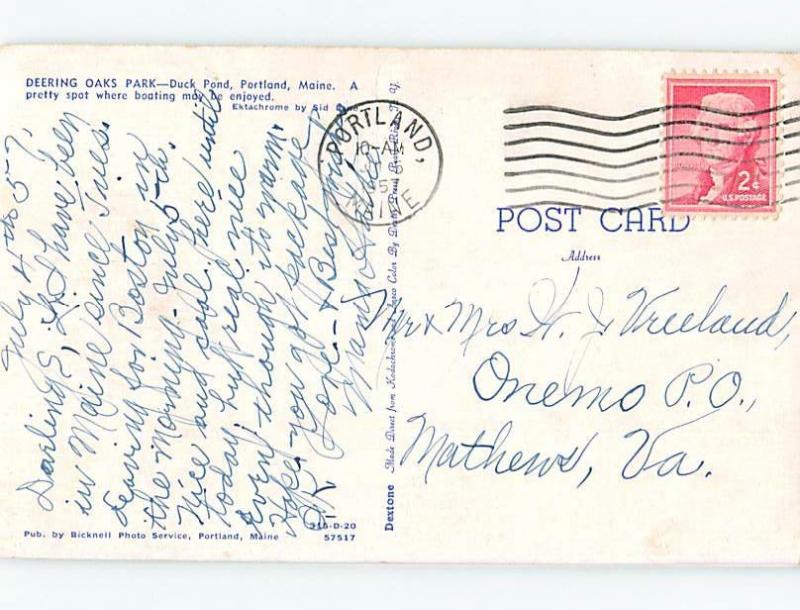 DEERING OAKS PARK—Duck Pond, Portland, Maine. A
pretty spot where boating may be enjoyed.
Ektachrome by Sid
July 4th 57,
Darling &, I have been
in Maine since Tues.
Leaving for Boston in
the morning. July 5th.
Nice and cool here until
today but real nice
even though its warm.
Hope you got package
OK Love - & Best
PORTLAND,
10-AM
MAINE
2¢
U.S. POSTAGE
POST CARD
Address
Mr & Mrs H. J. Vreeland,
Onemo P.O.,
Mathews, Va.
Dextone Made Direct from Kodachrome
315-D-20
Pub. by Bicknell Photo Service, Portland, Maine 57517